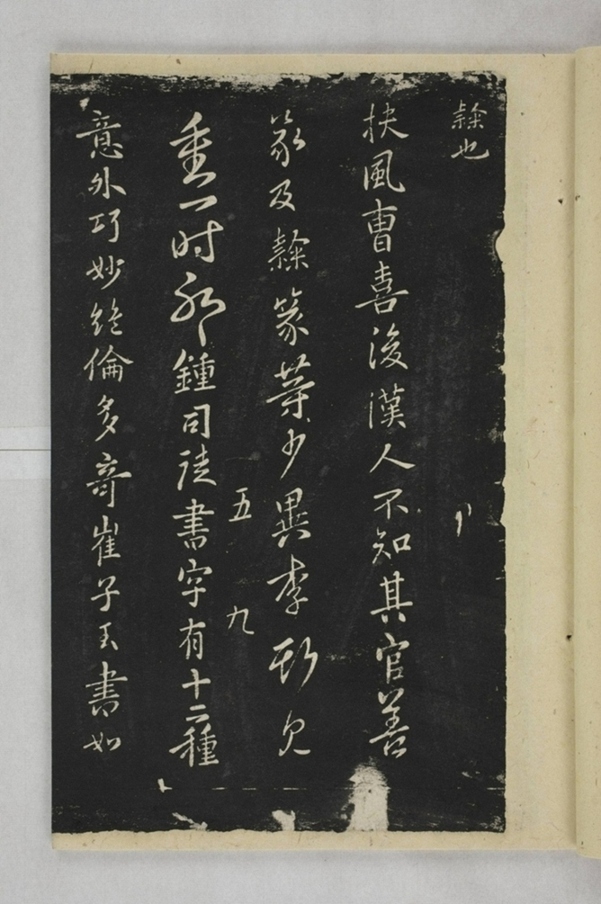 隸也
扶風曹喜後漢人不知其官善
篆及隸篆等少異李斯見
重一時耶鍾司徒書字有十二種
五
九
意外巧妙絕倫多奇崔子玉書如